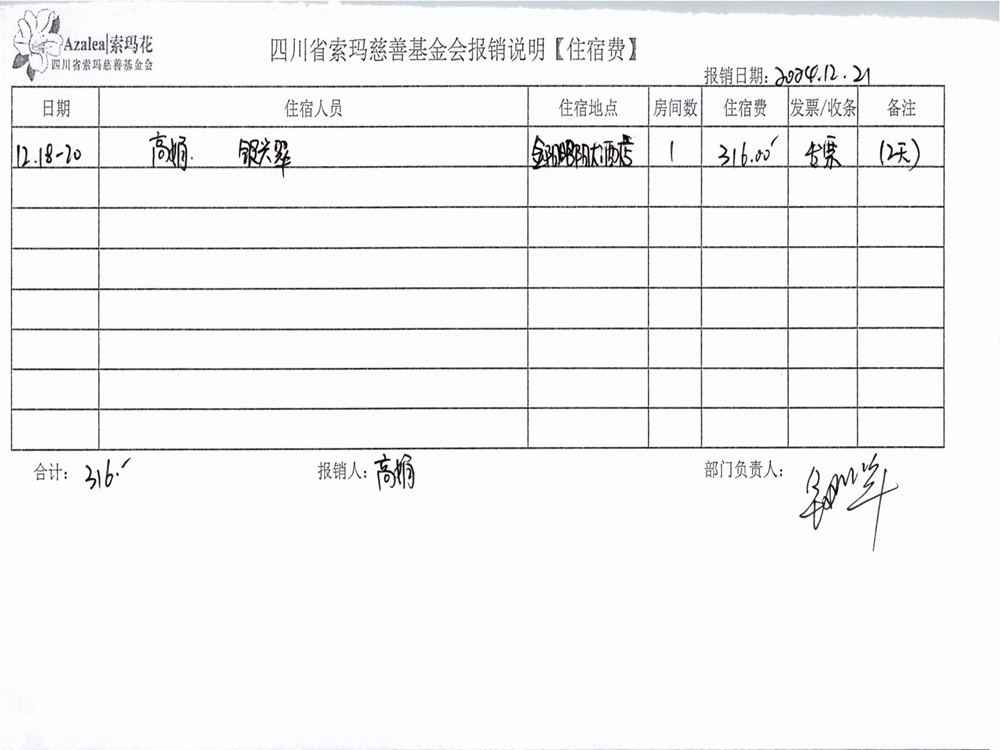 Azalea|索玛花
四川省索玛慈善基金会
四川省索玛慈善基金会报销说明【住宿费】
报销日期：2024.12.21
日期 住宿人员 住宿地点 房间数 住宿费 发票/收条 备注
12.18-20 高娟. 1 316.00 (2天)
合计： 316. 报销人：高娟 部门负责人：